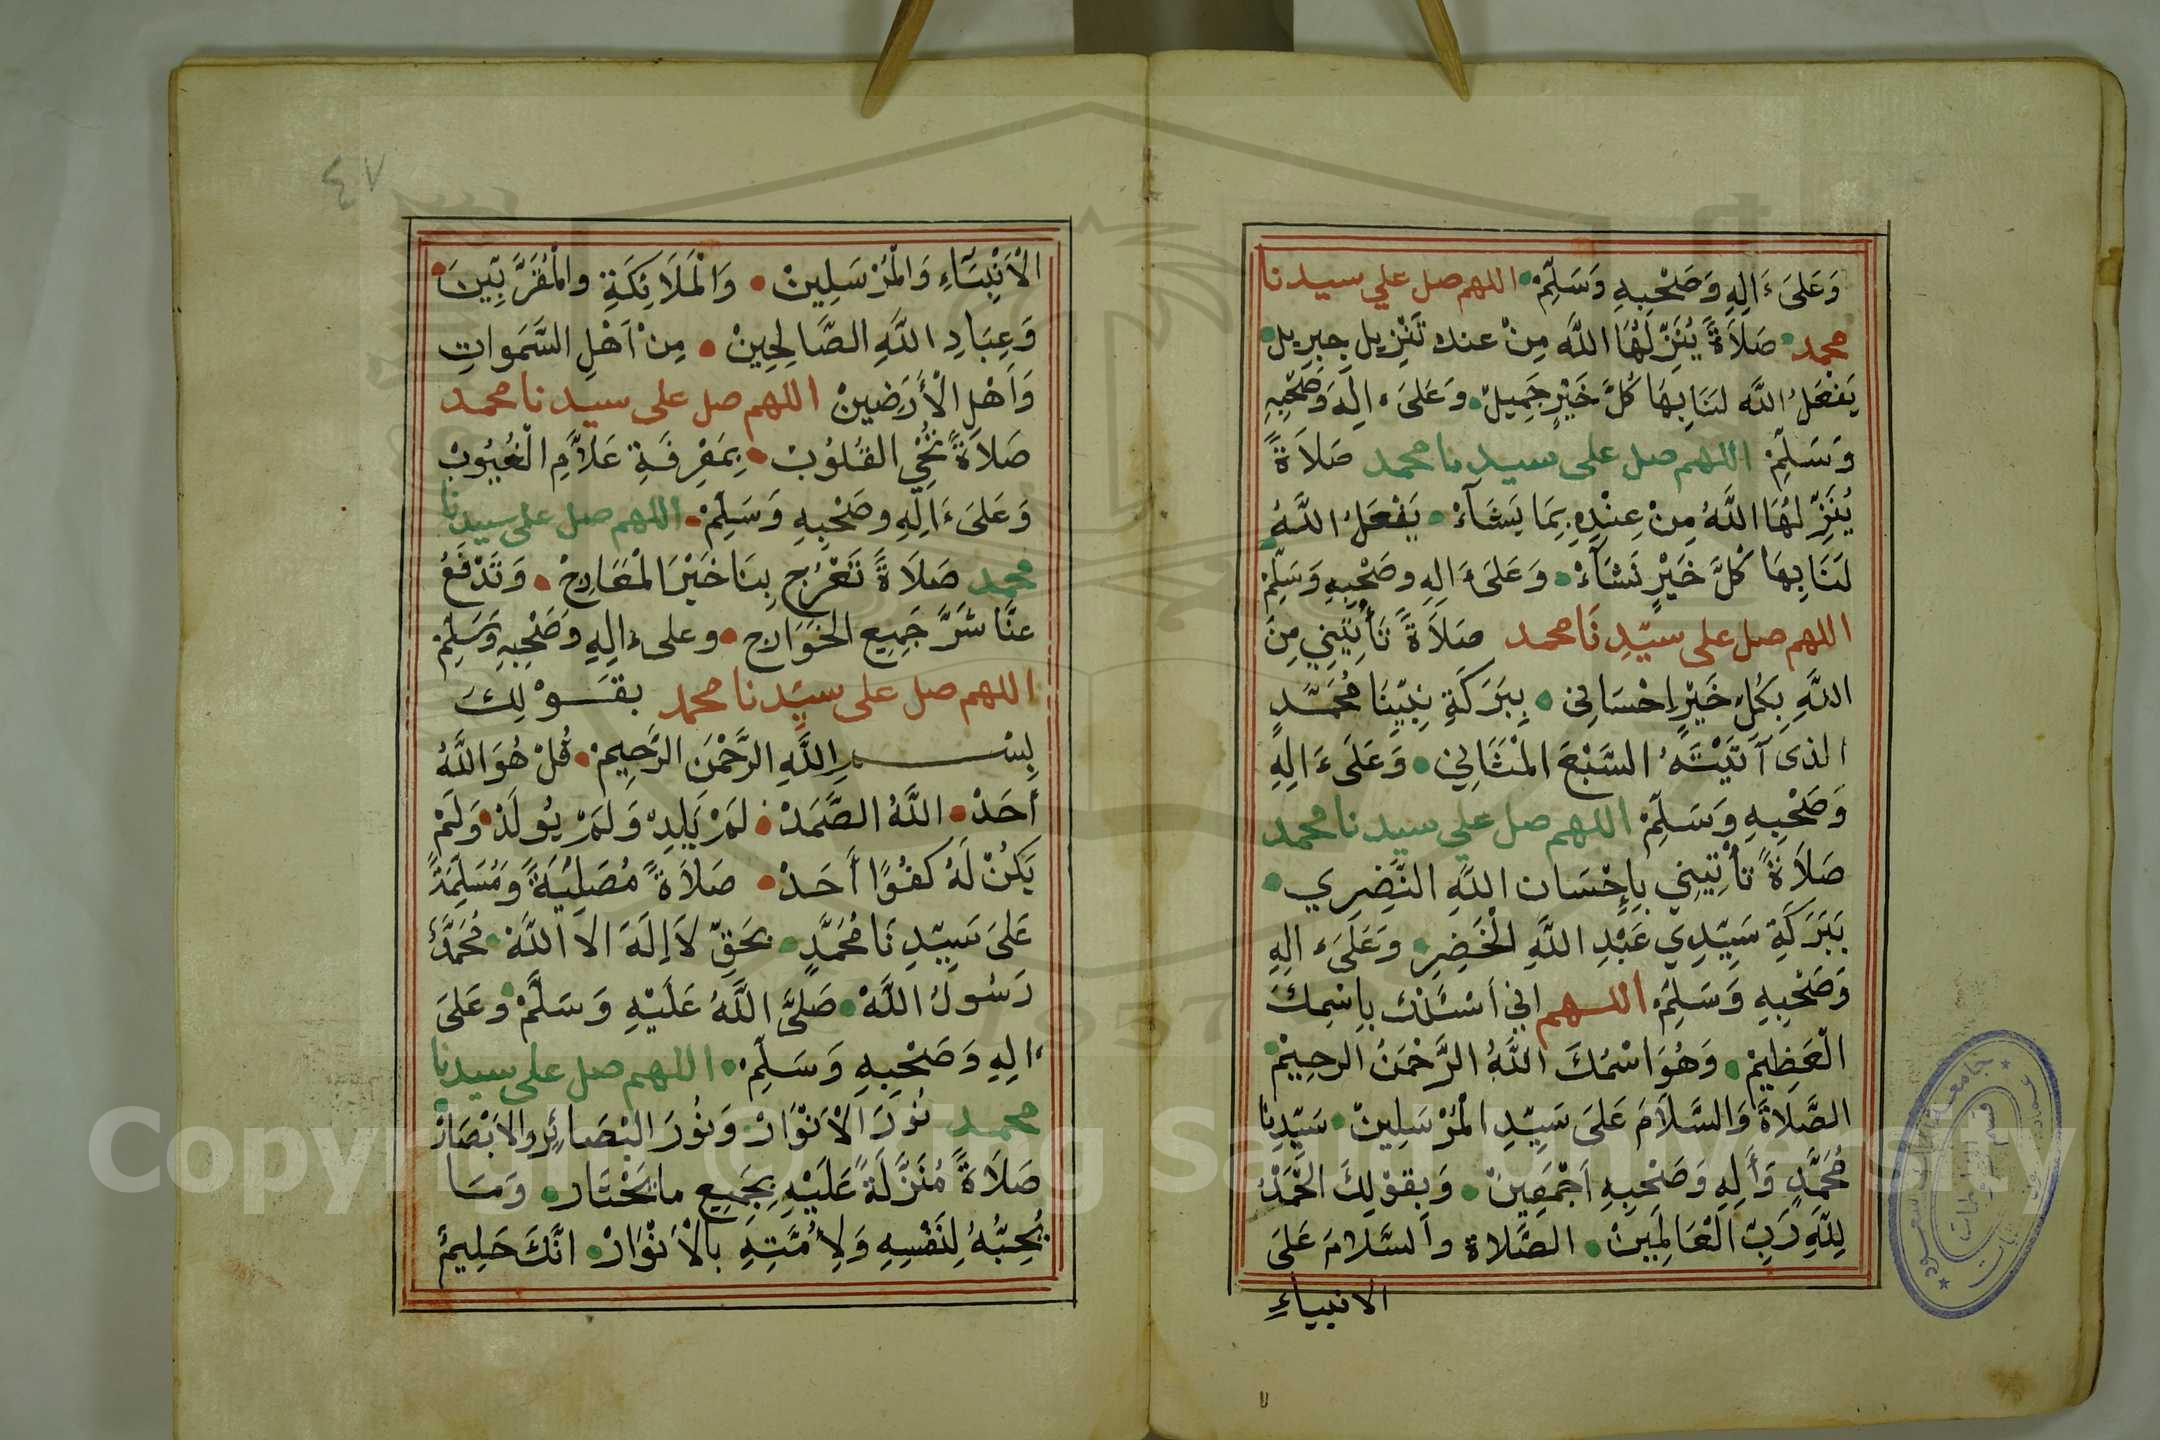 وَعَلَىٰ ءَالِهِ وَصَحْبِهِ وَسَلِّمْ اللهم صل علي سيدنا
محمد صَلَاةً يُنَزِّلُهَا اللَّه مِنْ عندك تَنْزِيل جِبرِيل
يَفْعَلُ اللَّه لَنَا بِهَا كُلَّ خَيْرٍ جَمِيلْ وَعَلَىٰ ءالِهِ وَصَحْبِهِ
وَسَلِّمْ اللهم صل على سيدنا محمد صَلَاةً
يُنَزِّلُهَا اللَّهُ مِنْ عِنْدِهِ بِمَا يَشَآءْ يَفْعَلُ اللَّهُ
لَنَا بِهَا كُلَّ خَيْرٍ نَشَآءْ وَعَلَىٰ ءَالِهِ وصَحْبِهِ وَسَلِّمْ
اللهم صل على سيّدِنَا محمد صَلَاةً تَأْتِيَنِي مِنَ
اللَّهِ بِكُلِّ خَيْرٍ احْسَانِي بِبَرَكَةِ نَبِيِّنَا مُحَمَّدٍ
الذى آتَيْتَهُ السَّبْعَ الْمَثَانِي وَعَلَىٰ ءَالِهِ
وَصَحْبِهِ وَسَلِّمْ اللهم صل علي سيدنا محمد
صَلَاةً تَأْتِيَنِي بِإِحْسَان اللَّهِ النَّضِرِي
بِبَرَكَةِ سَيِّدِي عَبْدِ اللَّهِ الْخَضِرِ وَعَلَىٰ ءالِهِ
وَصَحْبِهِ وَسَلِّمْ اللهم اني أسْئَلُكَ بِاسْمِكَ
الْعَظِيمْ وَهُوَ اسْمُكَ اللَّهُ الرَّحْمَنُ الرحِيمْ
الصَّلَاةَ وَالسَّلَامَ عَلَىٰ سَيِّدِ الْمُرْسَلِينْ سَيِّدِنا
مُحَمَّدٍ وَأَلِهِ وَصَحْبِهِ اَجْمَعِينْ وَبِقوْلِكَ الْحَمْدُ
لِلَّهِ رَبِّ الْعَالَمِينْ الصَّلاة والسَّلَامَ عَلَىٰ
الانبياءِ
٤٧
الْأَنْبِيَآءِ وَالْمُرْسَلِينْ وَالْمَلَائِكَةِ والْمُقَرَّبِينَ
وَعِبَادِ اللَّهِ الصَّالِحِينْ مِنْ اَهْلِ السَّمَواتِ
وَاَهْلِ الْأَرَضِينْ اللهم صل على سيدنا محمد
صَلَاةً تُحْيِ القُلُوبْ بِمَعْرِفَةِ عَلَّامِ الْغُيُوبْ
وَعَلَىٰ ءَالِهِ وصَحْبِهِ وَسَلِّمْ اللهم صل على سيدنا
محمد صَلَاةً تَعْرُج بِنَا خَيْرَ الْمَعَارِجْ وَتَدْفَعُ
عنَّا شَرَّ جَمِيعِ الخَوَارج وعلى ءالِهِ وَصَحْبِهِ وَسَلِّمْ
اللهم صل على سيّدنا محمد بقَوْلِكَ
بِسْمِ اللَّهِ الرَّحْمَنِ الرَّحِيمْ قُلْ هُوَ اللَّهُ
أَحَدْ اللَّهُ الصَّمَدْ لَمْ يَلِدْ وَلَمْ يُولَدْ وَلَمْ
يَكُنْ لَهُ كُفُوًا أَحَدْ صَلَاةً مُصَلِّيَةً وَمُسَلِّمَةً
عَلَىٰ سَيِّدِنَا مُحَمَّدٍ بحَقِّ لَا اِلَهَ الا اللَّهْ مُحَمَّدٌ
رَسُولُ اللَّهْ صَلَّى اللَّهُ عَلَيْهِ وَسَلَّمْ وعَلَىٰ
ءالِهِ وَصَحْبِهِ وَسَلِّمْ اللهم صل على سيدنا
محمد نُورَ الْاَنْوَارْ وَنُورَ الْبَصَائِرِ والابْصَارْ
صَلَاةً مُنَزَّلَةً عَلَيْهِ بِجَمِيعِ ما يَخْتَار وَمَا
يُحِبُّهُ لِنَفْسِهِ وَلِأُمَّتِهِ بالْأَنْوَارْ انَّكَ حَلِيمٌ
Copyright © King Saud University
1957